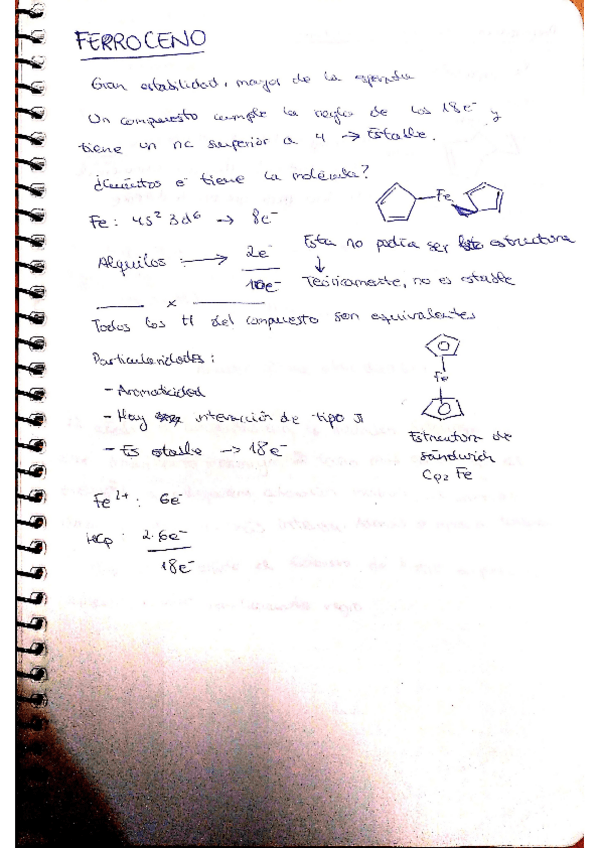 FERROCENO
Gran estabilidad, mayor de la esperada
Un compuesto cumple la regla de los 18e⁻ y
tiene un nc superior a 4 → Estable.
¿Cuántos e⁻ tiene la molécula?
Fe
Fe: 4s² 3d⁶ → 8e⁻
Esta no podía ser estructura
Alquilos: → 2e⁻
10e⁻
Teóricamente, no es estable
x
Todos los H del compuesto son equivalentes
Particularidades:
Fe
- Aromaticidad
- Hay interacción de tipo π
- Es estable → 18e⁻
Estructura de
sándwich
Cp₂ Fe
Fe²⁺: 6e⁻
Cp: 2·6e⁻
18e⁻